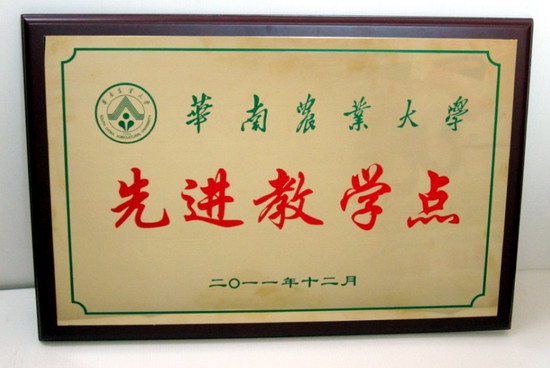 華南農業大學
先进教学点
二〇一一年十二月